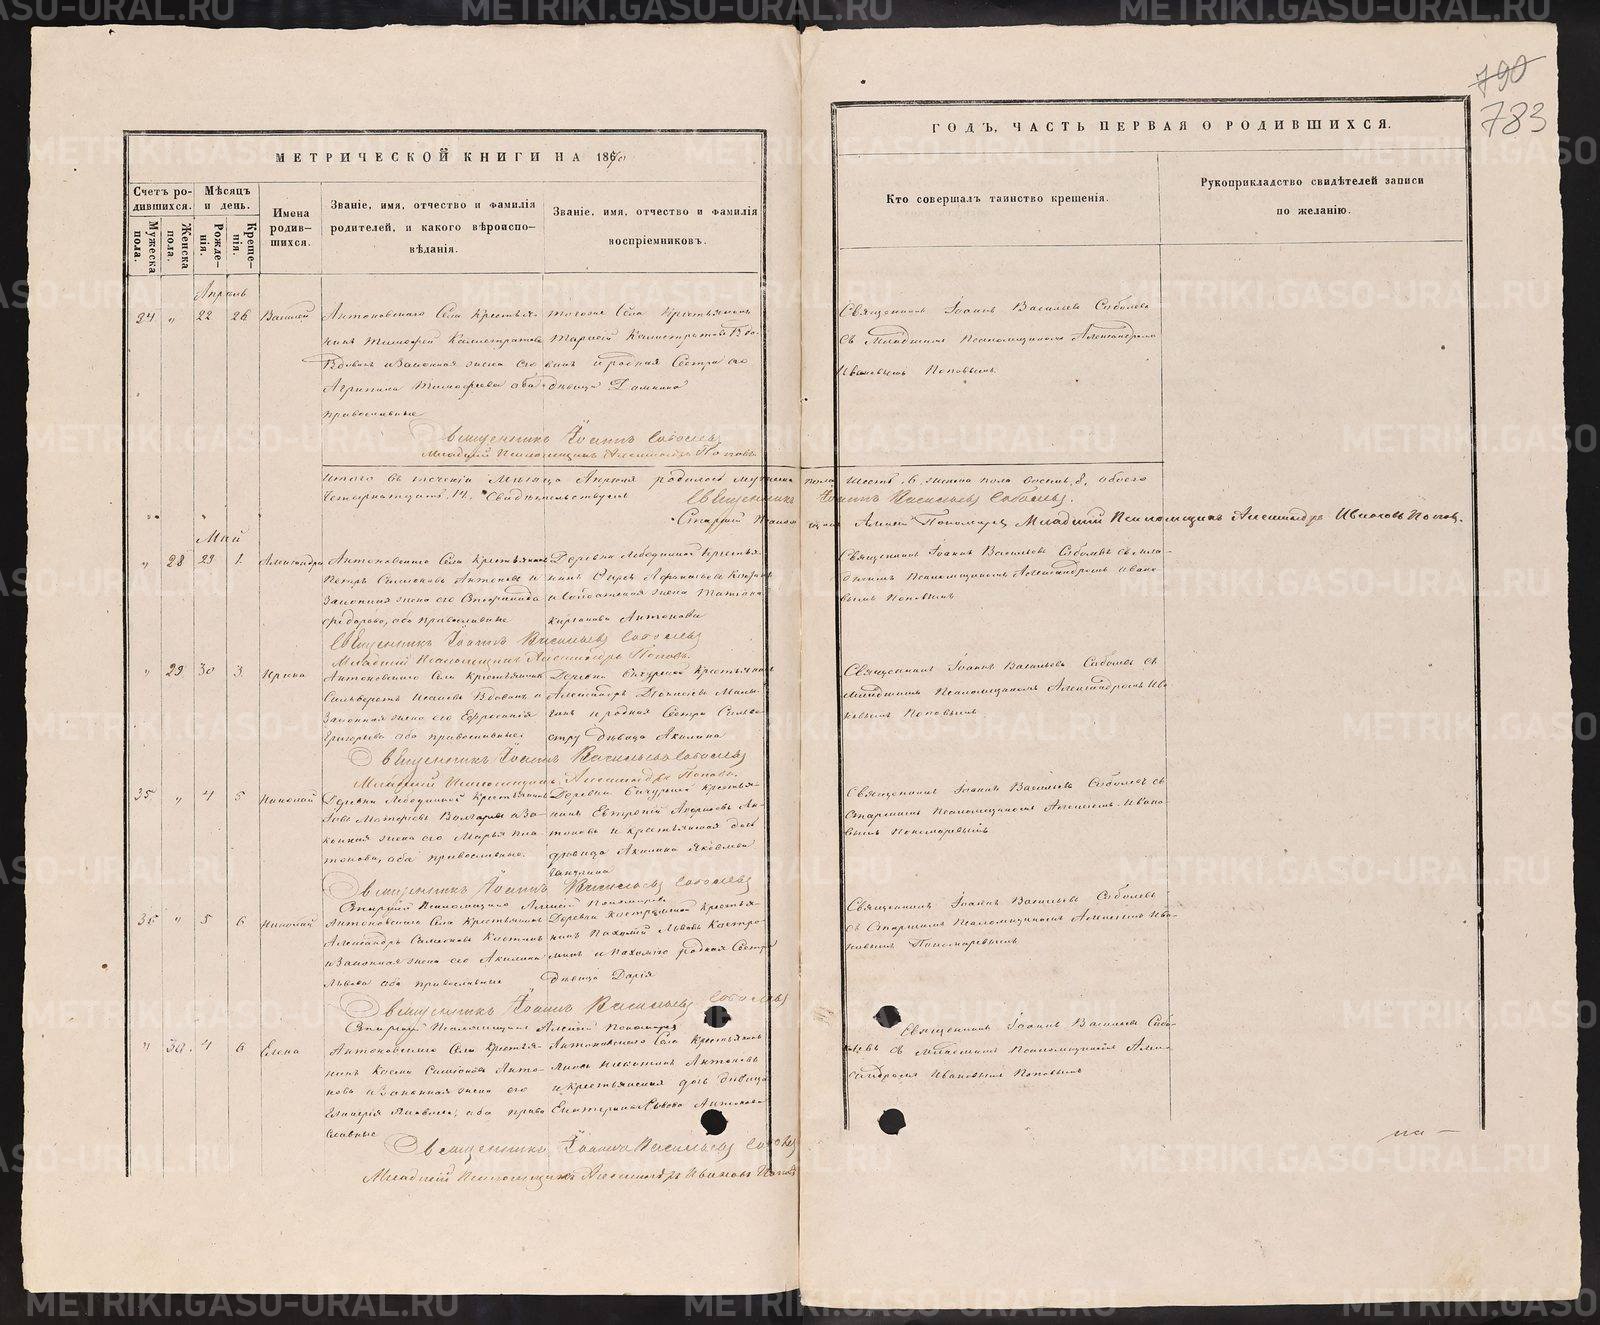 790
783
МЕТРИЧЕСКОЙ КНИГИ НА 1870
ГОДЪ, ЧАСТЬ ПЕРВАЯ О РОДИВШИХСЯ.
Счетъ ро-
дившихся.
Мужеска
пола.
Женска
пола.
Мѣсяцъ
и день.
Рожде-
нія.
Креще-
нія.
Имена
родив-
шихся.
Званіе, имя, отчество и фамилія
родителей, и какого вѣроиспо-
вѣданія.
Званіе, имя, отчество и фамилія
воспріемниковъ.
Кто совершалъ таинство крещенія.
Рукоприкладство свидѣтелей записи
по желанію.
Апрѣль
34 " 22 26 Василій
Антоновскаго Села Крестья-
нинъ Тимофей Калистратовъ
Вдовинъ и Законная жена его
Агрипина Тимофеева оба
православные
тогоже Села Крестьянинъ
Калистратовъ Вдо-
винъ и родная Сестра его
дѣвица Домника
Священникъ Іоаннъ Васильевъ Соболевъ
съ Младшимъ Псаломщикомъ Александромъ
Ивановымъ Поповымъ.
Священникъ Іоаннъ Соболевъ
Младшій Псаломщикъ Александръ Поповъ
Итого въ теченіи Мѣсяца Апрѣля родилось мужеска пола Шесть, 6. женска пола восемь, 8. обоего
Четырнадцать 14. Свидѣтельствуемъ
Священникъ Іоаннъ Васильевъ Соболевъ.
Старшій Псаломщикъ Алексій Пономаревъ Младшій Псаломщикъ Александръ Ивановъ Поповъ.
Май
" 28 29 1. Александра
Антоновскаго Села Крестьянинъ
Петръ Симеоновъ Антоновъ и
Законная жена его Степанида
Федорова, оба православные
Деревни Лебедкиной Крестья-
нинъ
жена Татіана
Антонова
Священникъ Іоаннъ Васильевъ Соболевъ съ Мла-
дшимъ Псаломщикомъ Александромъ Ивано-
вымъ Поповымъ
Священникъ Іоаннъ Васильевъ Соболевъ
Младшій Псаломщикъ Александръ Поповъ.
" 29 30 3. Ирина
Антоновскаго Села Крестьянинъ
Вдовинъ и
Законная жена его Ефросинія
Григорьева оба православные
Деревни Бичурской Крестьянинъ
Александръ
и родная Сестра
дѣвица Акилина
Священникъ Іоаннъ Васильевъ Соболевъ съ
Младшимъ Псаломщикомъ Александромъ Ива-
новымъ Поповымъ
Священникъ Іоаннъ Васильевъ Соболевъ
Младшій Псаломщикъ Александръ Поповъ.
35 " 4 5 Николай
Деревни Лебедкиной Крестьянинъ
и За-
конная жена его Марья Пла-
тонова, оба православные.
Деревни Бичурской Крестья-
нинъ Евтропій Андреевъ Ан-
тоновъ и крестьянская дочь
дѣвица Акилина Яковлева
Священникъ Іоаннъ Васильевъ Соболевъ съ
Старшимъ Псаломщикомъ Алексіемъ Ивано-
вымъ Пономаревымъ
Священникъ Іоаннъ Васильевъ Соболевъ
Старшій Псаломщикъ Алексій Пономаревъ
36 " 5 6 Николай
Антоновскаго Села Крестьянинъ
Александръ Симеоновъ Костинъ
и Законная жена его Акилина
Львова оба православные
Деревни Костроминой Крестья-
нинъ Пахомій Львовъ Костро-
минъ и Пахомія родная Сестра
дѣвица Дарія
Священникъ Іоаннъ Васильевъ Соболевъ
съ Старшимъ Псаломщикомъ Алексіемъ Ива-
новымъ Пономаревымъ
Священникъ Іоаннъ Васильевъ Соболевъ
Старшій Псаломщикъ Алексій Пономаревъ
" 30. 4 6 Елена
Антоновскаго Села Крестья-
нинъ Косма Симеоновъ Анто-
новъ и Законная жена его
Гликерія Яковлева, оба право
славные
Антоновскаго Села Крестьянинъ
Никитинъ Антоновъ
и крестьянская дочь дѣвица
Екатерина Львова Антонова
Священникъ Іоаннъ Васильевъ Собо-
левъ съ Младшимъ Псаломщикомъ Алек-
сандромъ Ивановымъ Поповымъ
Священникъ Іоаннъ Васильевъ Соболевъ
Младшій Псаломщикъ Александръ Ивановъ Поповъ
METRIKI.GASO-URAL.RU